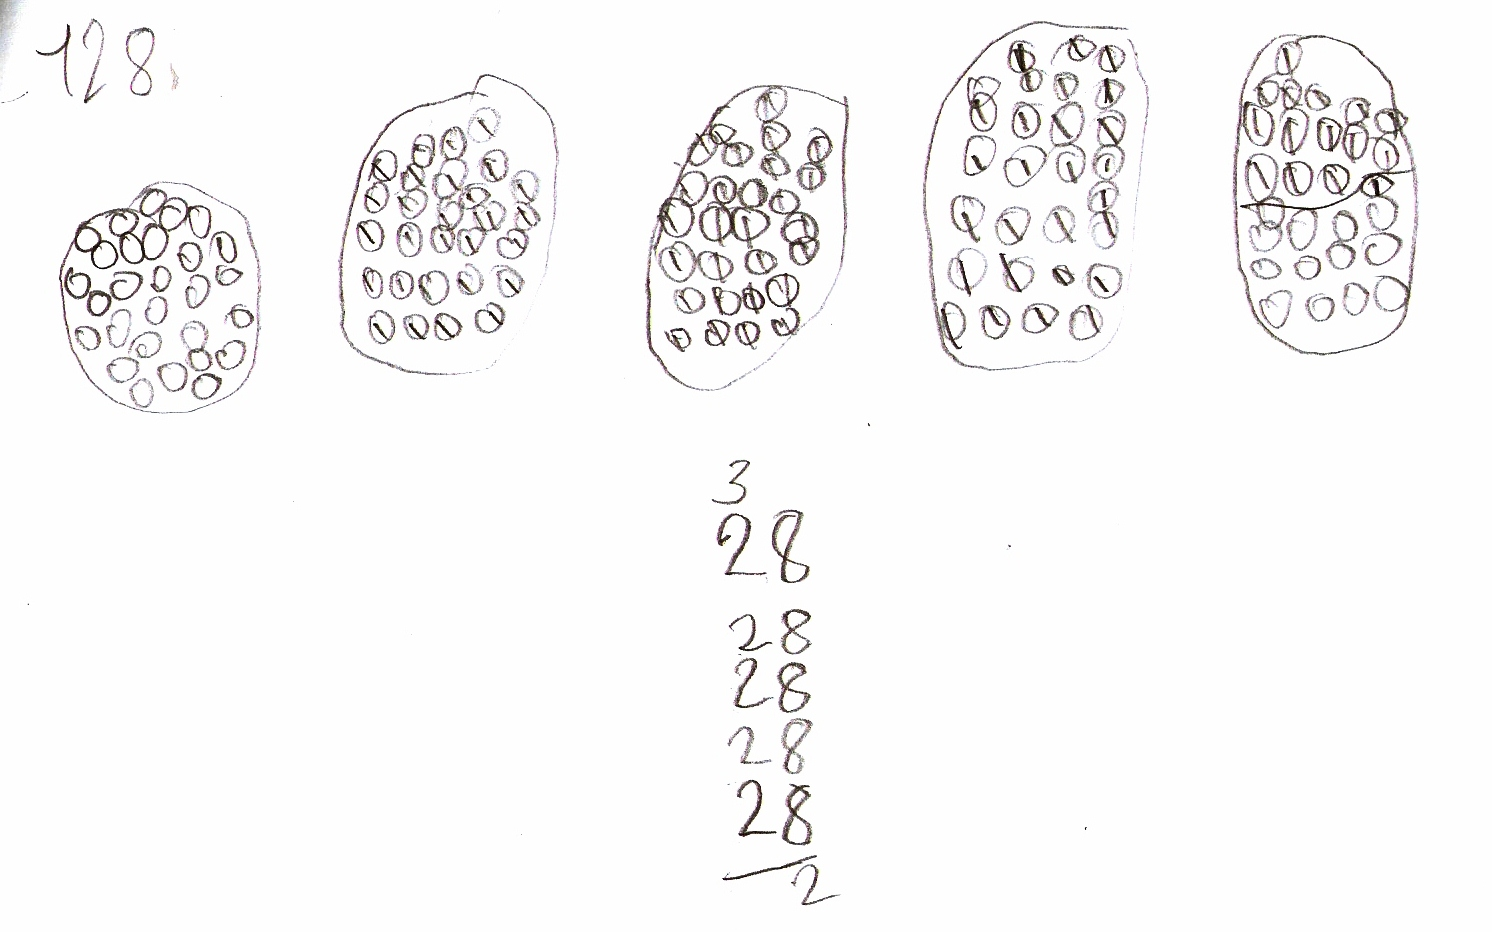 128
3
28
28
28
28
28
2